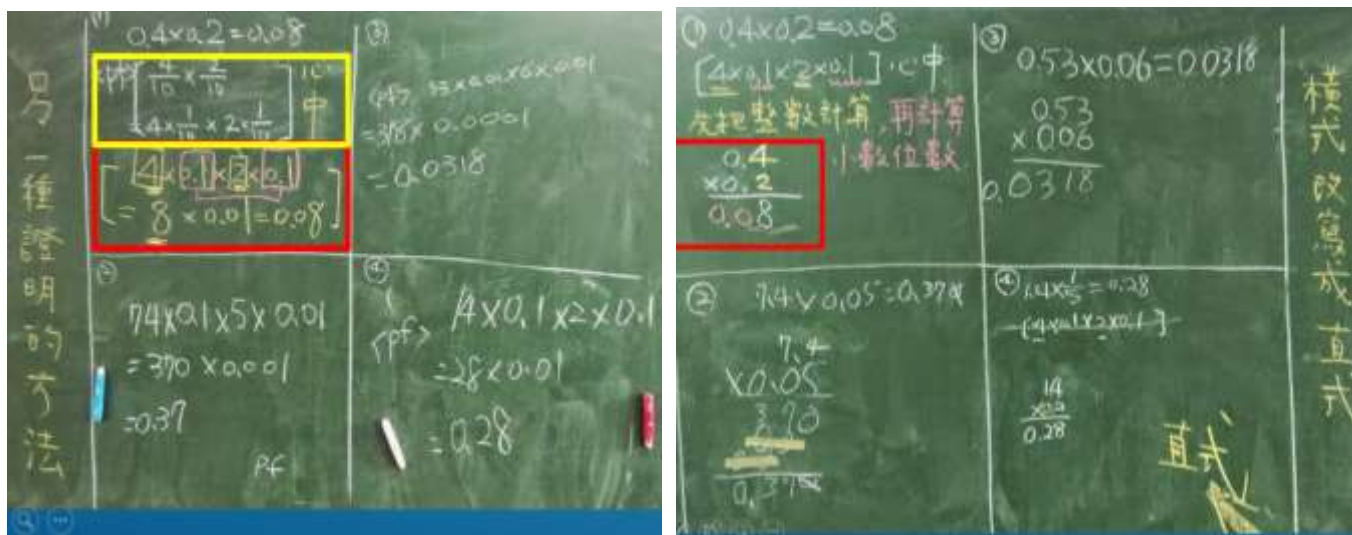 另一種證明的方法
①
0.4×0.2=0.08
<pf>[4/10 × 2/10
=4×1/10 × 2×1/10] 心中
[4×0.1×2×0.1
= 8 ×0.01=0.08]
③
<pf> 53×0.01×6×0.01
=318×0.0001
=0.0318
②
74×0.1×5×0.01
=370×0.001
=0.37
Pf
④
<pf> 14×0.1×2×0.1
=28×0.01
=0.28
① 0.4×0.2=0.08
[4×0.1×2×0.1]心中
先把整數計算,再計算
小數位數
0.4
×0.2
0.08
③
0.53×0.06=0.0318
0.53
×0.06
0.0318
② 7.4×0.05=0.370
7.4
×0.05
370
0.370
④ 1.4×1/5=0.28
[14×0.1×2×0.1]
14
×0.2
0.28
直式
橫式改寫成直式